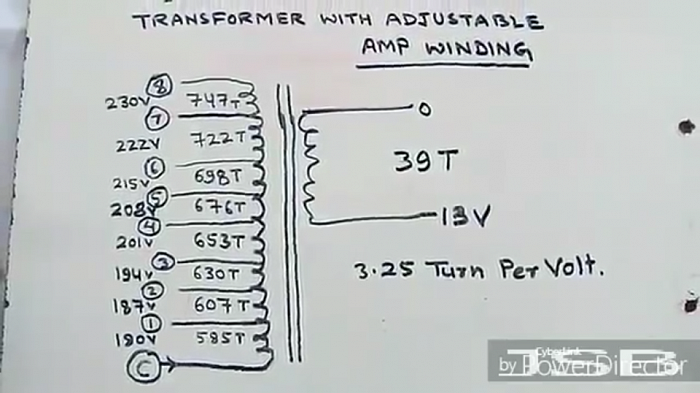 TRANSFORMER WITH ADJUSTABLE
AMP WINDING
8
230V 747T
7
222V 722T
6
215V 698T
5
208V 676T
4
201V 653T
3
194V 630T
2
187V 607T
1
180V 585T
C
0
39T
13V
3.25 Turn Per Volt.
JSB
CyberLink
by PowerDirector